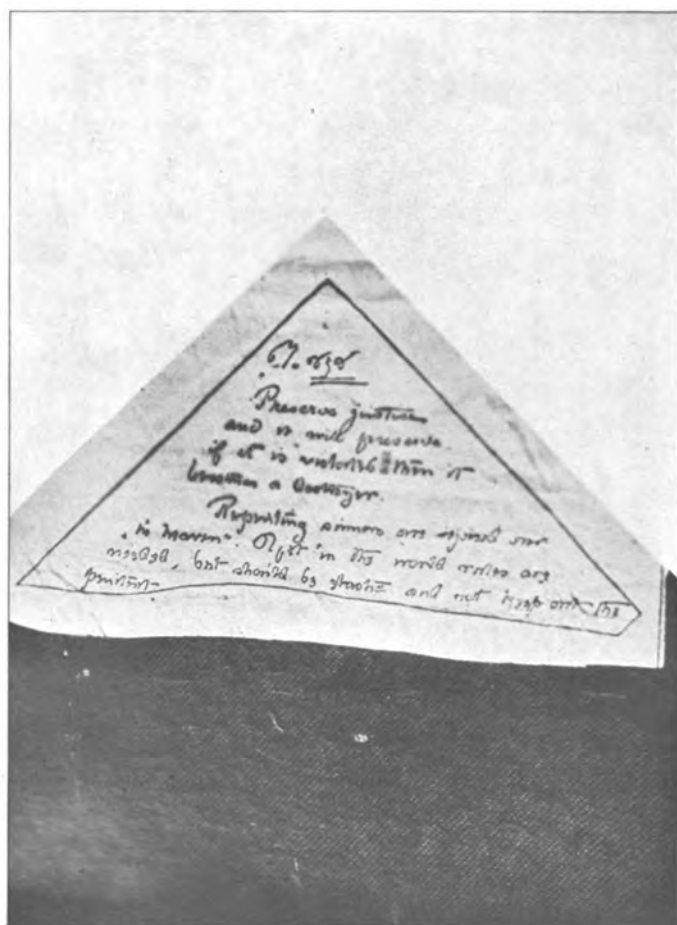 Preserve justice
and it will preserve.
if it is violated then it
becomes a destroyer.
Repenting sinners are rejoiced over
"in heaven". in the world rules are
needed, but should be elastic and not keep out the
penitent.